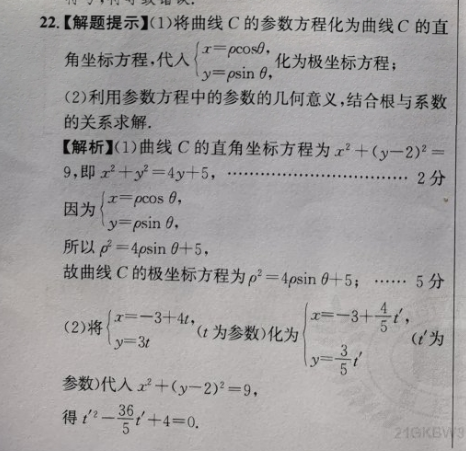 22.【解题提示】(1)将曲线 C 的参数方程化为曲线 C 的直
角坐标方程,代入{x=ρcosθ, y=ρsin θ,化为极坐标方程;
(2)利用参数方程中的参数的几何意义,结合根与系数
的关系求解.
【解析】(1)曲线 C 的直角坐标方程为 x²+(y-2)²=
9,即 x²+y²=4y+5, …………………………… 2分
因为{x=ρcos θ, y=ρsin θ,
所以 ρ²=4ρsin θ+5,
故曲线 C 的极坐标方程为 ρ²=4ρsin θ+5; …… 5分
(2)将{x=-3+4t, y=3t (t 为参数)化为{x=-3+4/5t′, y=3/5t′ (t′为
参数)代入 x²+(y-2)²=9,
得 t′²-36/5t′+4=0.